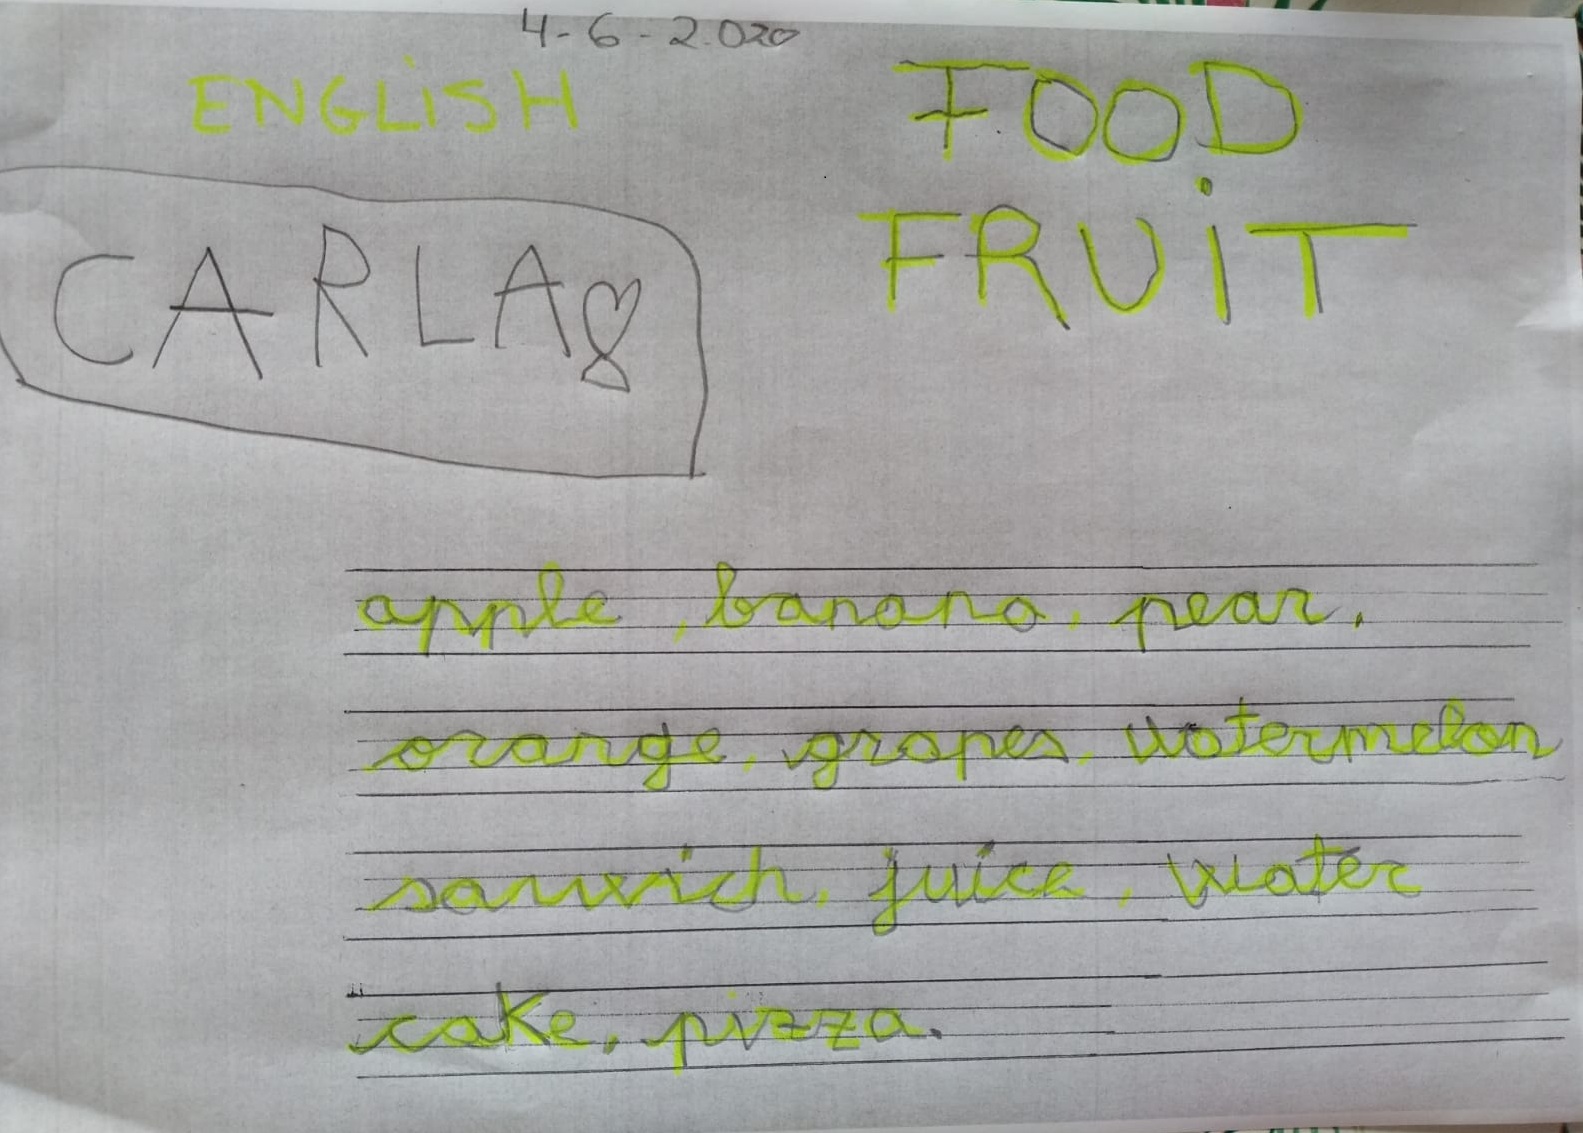 4-6-2.020
ENGLiSH
FOOD
FRUiT
CARLA
apple, banana, pear,
orange, grapes, watermelon
sanwich, juice, water
cake, pizza.